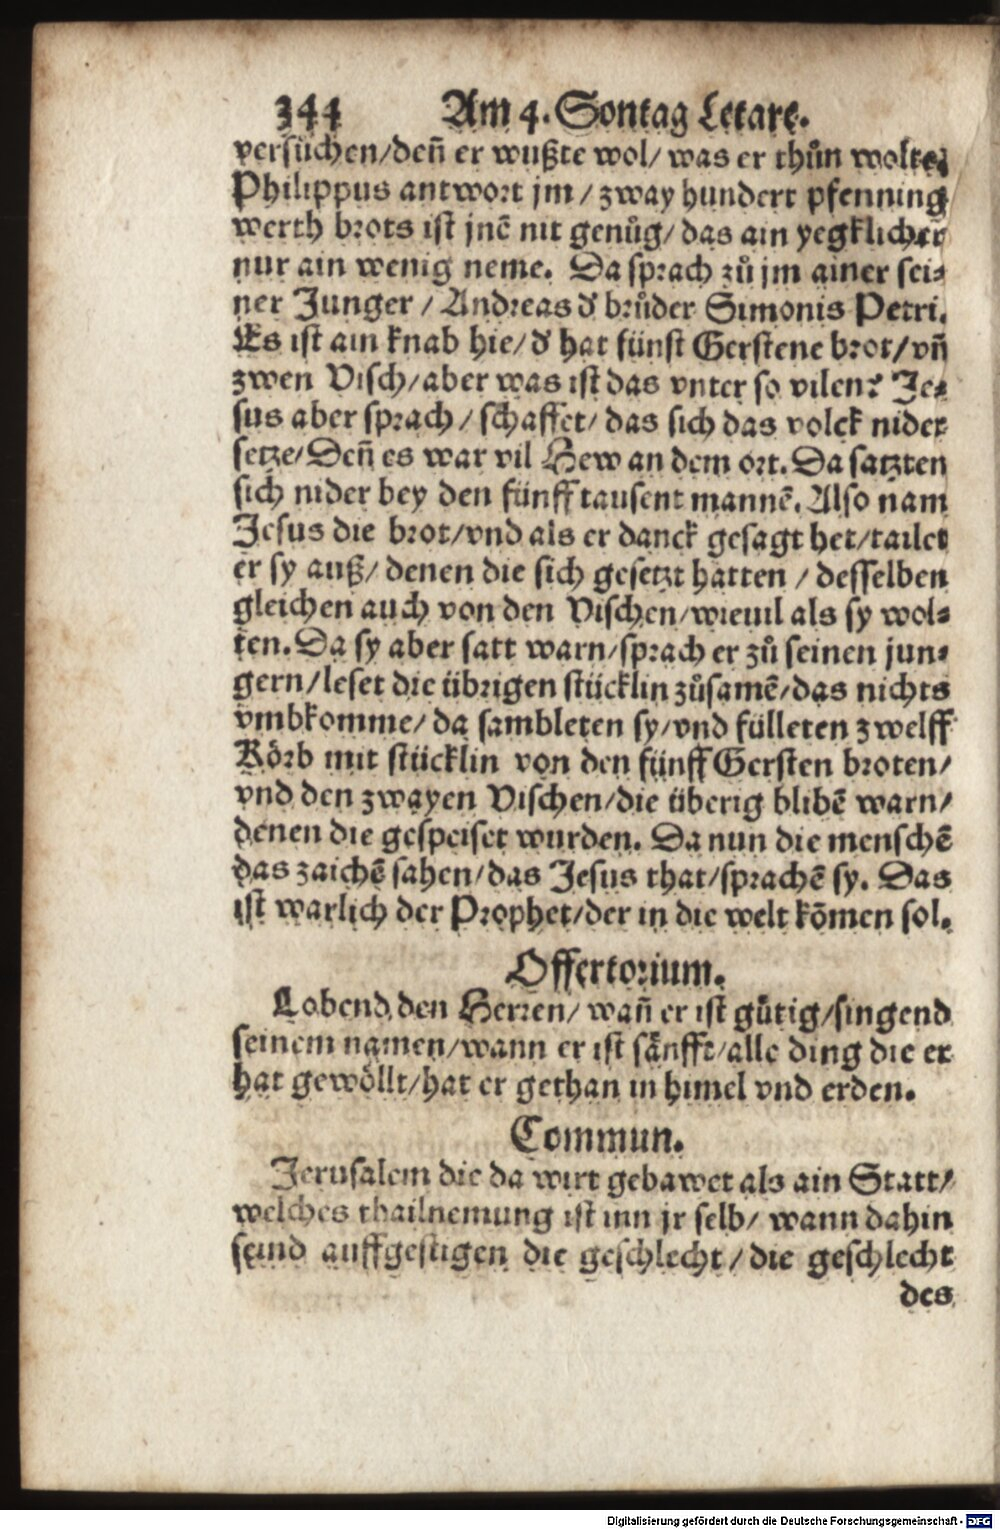 344 Am 4. Sontag Letare.
versuͤchen/deñ er wußte wol/ was er thuͦn wolte.
Philippus antwort jm/ zway hundert pfenning
werth brots ist jnē nit genuͦg/ das ain yegklicher
nur ain wenig neme. Da sprach zuͦ jm ainer sei⸗
ner Junger/ Andreas d' bruͦder Simonis Petri.
Es ist ain knab hie/ d' hat fünff Gerstene brot/ vñ
zwen Visch/ aber was ist das vnter so vilen? Je⸗
sus aber sprach/ schaffet/ das sich das volck nider
setze/ Deñ es war vil Hew an dem ort. Da satzten
sich nider bey den fünff tausent mannē. Also nam
Jesus die brot/ vnd als er danck gesagt het/ tailet
er sy auß/ denen die sich gesetzt hatten/ desselben
gleichen auch von den Vischen/ wieuil als sy wol⸗
ten. Da sy aber satt warn/ sprach er zuͦ seinen jun⸗
gern/ leset die übrigen stücklin zuͦsamē/ das nichts
vmbkomme/ da sambleten sy/ vnd fülleten zwelff
Körb mit stücklin von den fünff Gersten broten/
vnd den zwayen Vischen/ die überig blibē warn/
denen die gespeiset wurden. Da nun die menschē
das zaichē sahen/ das Jesus that/ sprachē sy. Das
ist warlich der Prophet/ der in die welt kōmen sol.
Offertorium.
Lobend den Herren/ wañ er ist guͤtig/ singend
seinem namen/ wann er ist sänfft/ alle ding die er
hat gewöllt/ hat er gethan in himel vnd erden.
Commun.
Jerusalem die da wirt gebawet als ain Statt/
welches thailnemung ist inn jr selb/ wann dahin
seind auffgestigen die geschlecht/ die geschlecht
des
Digitalisierung gefördert durch die Deutsche Forschungsgemeinschaft - DFG